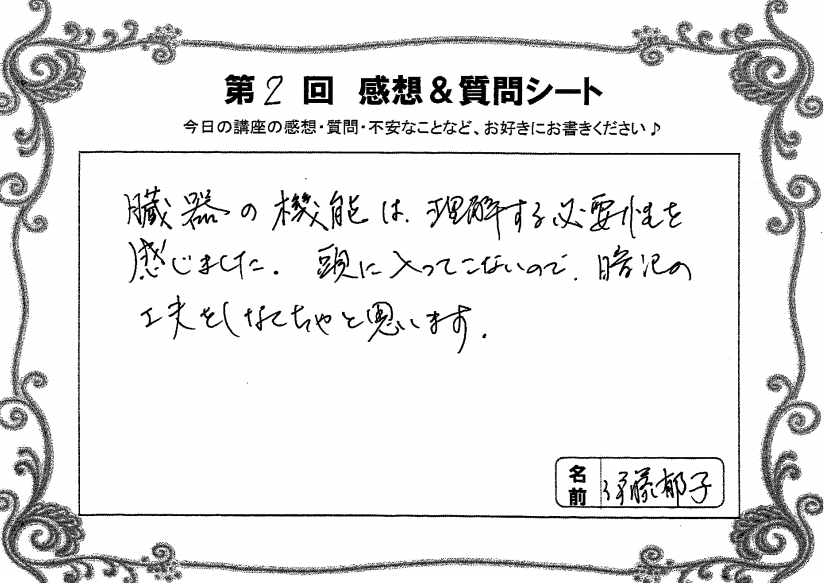 第2回 感想&質問シート
今日の講座の感想・質問・不安なことなど、お好きにお書きください♪
臓器の機能は、理解する必要性を
感じました。頭に入ってこないので、暗記の
工夫をしなくちゃと思います。
名前 伊藤郁子